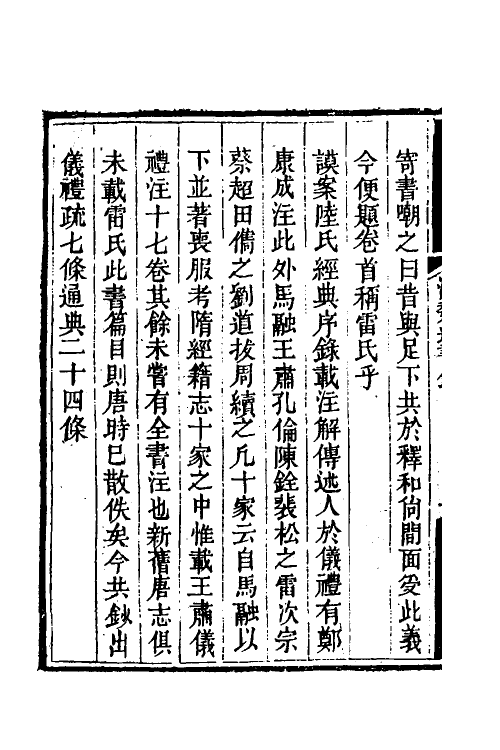 寄書嘲之曰昔與足下共於釋和尙間面受此義
今便題卷首稱雷氏乎
謨案陸氏經典序錄載注解傳述人於儀禮有鄭
康成注此外馬融王肅孔倫陳銓裴松之雷次宗
蔡超田儁之劉道拔周續之凡十家云自馬融以
下並著喪服考隋經籍志十家之中惟載王肅儀
禮注十七卷其餘未嘗有全書注也新舊唐志俱
未載雷氏此書篇目則唐時已散佚矣今共鈔出
儀禮疏七條通典二十四條